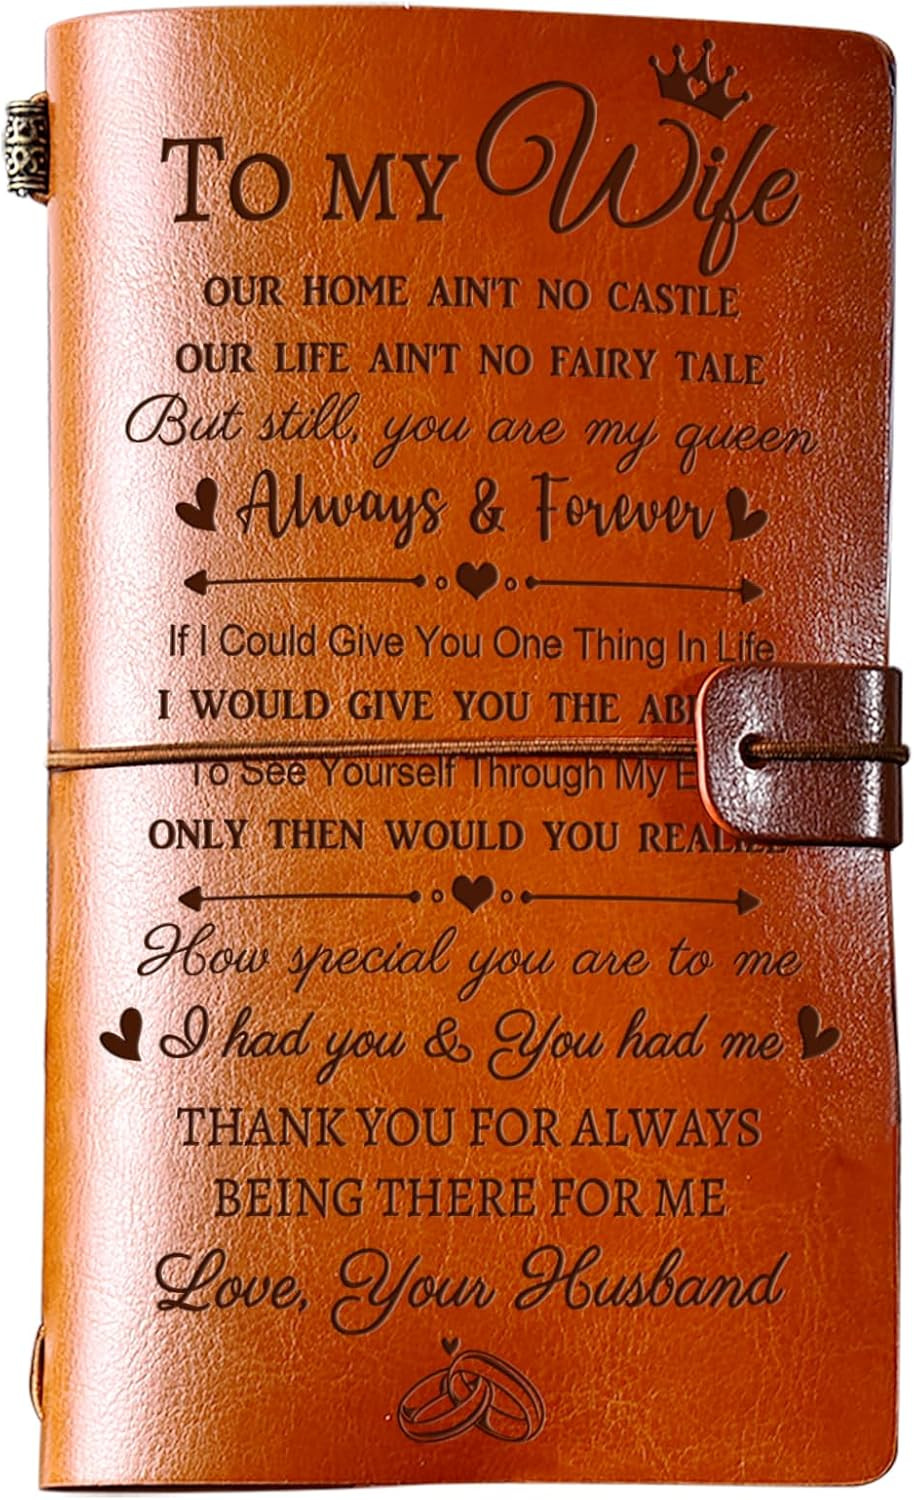 TO MY Wife
OUR HOME AIN'T NO CASTLE
OUR LIFE AIN'T NO FAIRY TALE
But still, you are my queen
Always & Forever
If I Could Give You One Thing In Life
I WOULD GIVE YOU THE
To See Yourself Through My
ONLY THEN WOULD YOU REALIZE
How special you are to me
I had you & You had me
THANK YOU FOR ALWAYS
BEING THERE FOR ME
Love, Your Husband